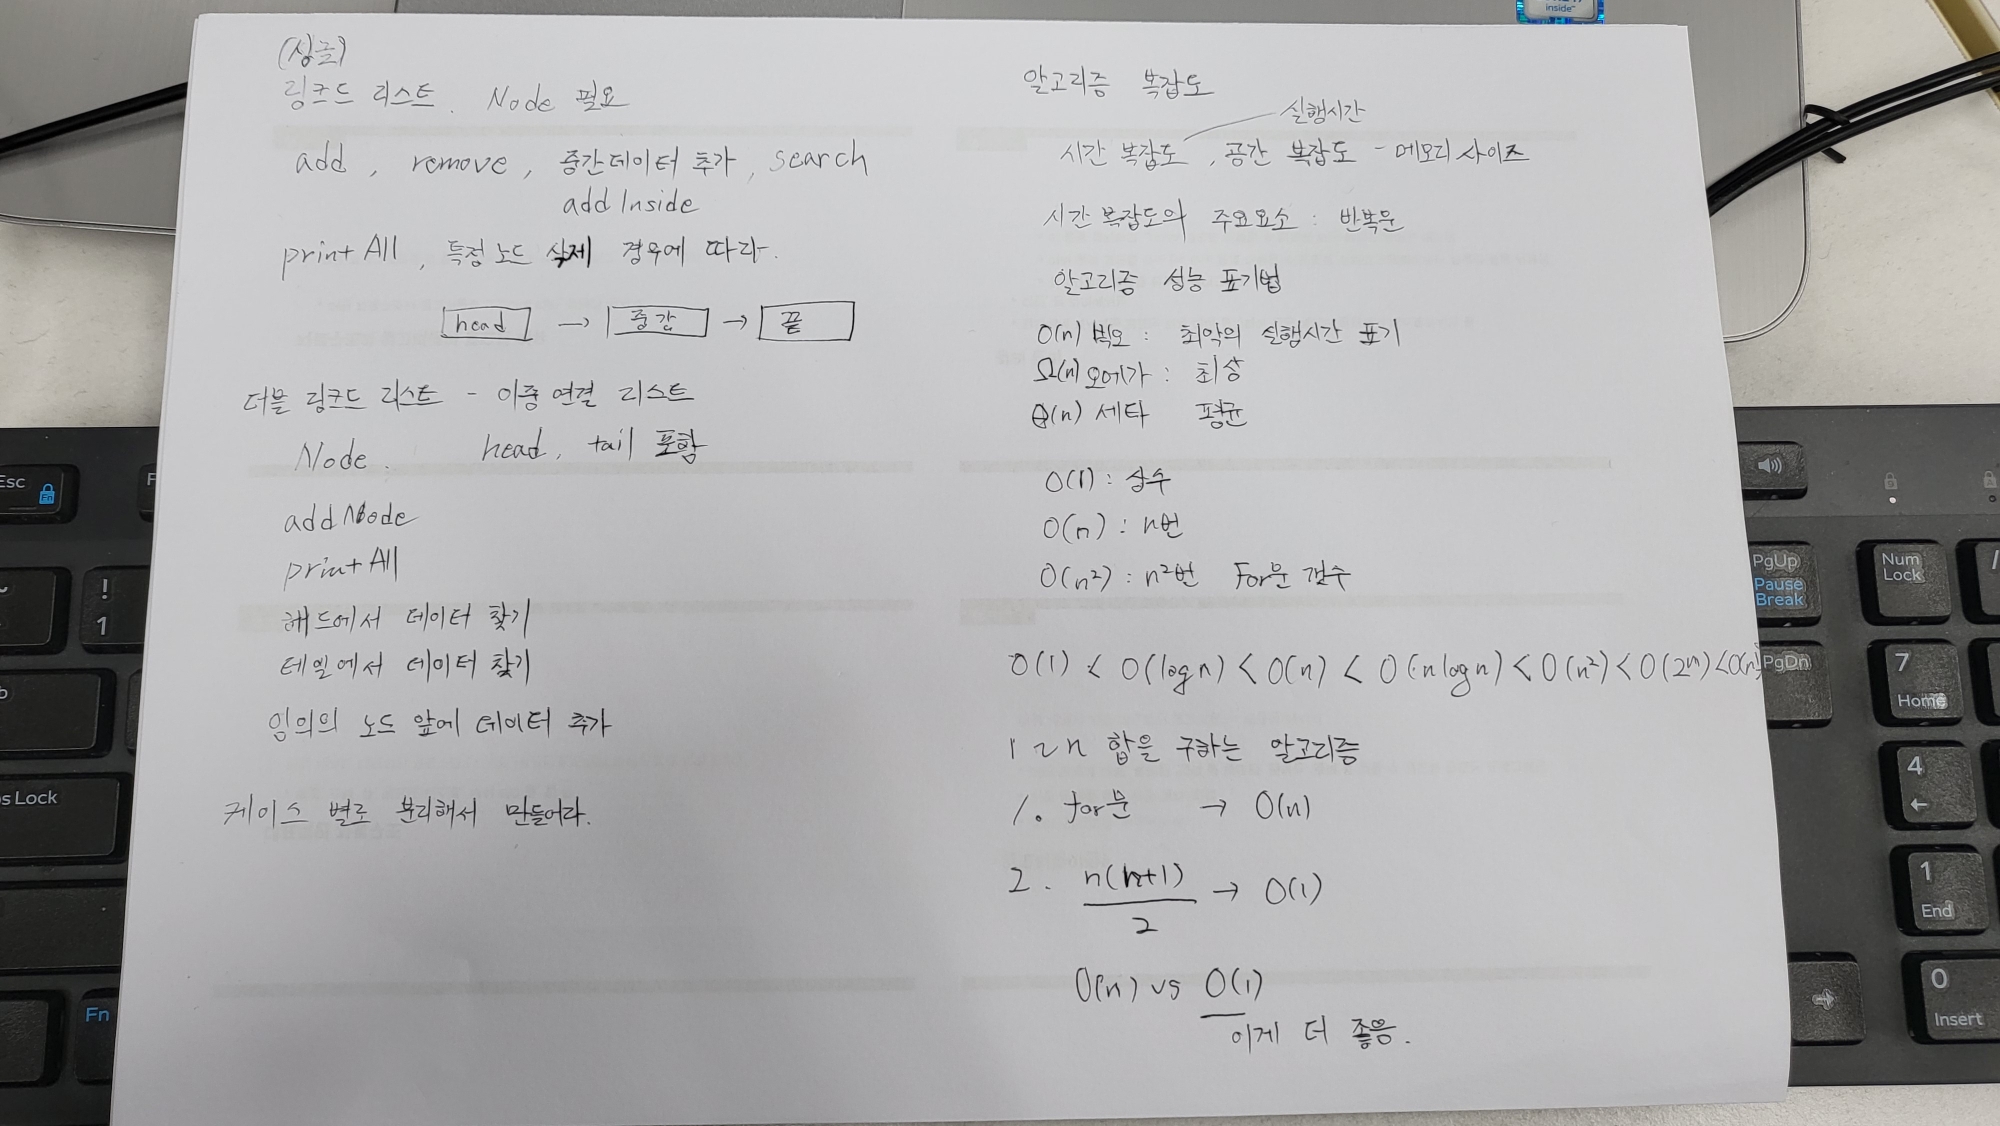 (싱글)
링크드 리스트. Node 필요
add, remove, 중간데이터 추가, search
addInside
printAll, 특정노드 삭제 경우에 따라.
head → 중간 → 끝
더블 링크드 리스트 - 이중 연결 리스트
Node. head, tail 포함
addNode
printAll
헤드에서 데이터 찾기
테일에서 데이터 찾기
임의의 노드 앞에 데이터 추가
케이스 별로 분리해서 만들어라.
알고리즘 복잡도
실행시간
시간 복잡도, 공간 복잡도 - 메모리 사이즈
시간 복잡도의 주요요소 : 반복문
알고리즘 성능 표기법
O(n) 빅오 : 최악의 실행시간 표기
Ω(n) 오메가 : 최상
Θ(n) 세타 평균
O(1) : 상수
O(n) : n번
O(n²) : n²번 For문 갯수
O(1) < O(log n) < O(n) < O(n log n) < O(n²) < O(2ⁿ) < O(n
1~n 합을 구하는 알고리즘
1. for문 → O(n)
2. n(n+1)/2 → O(1)
O(n) vs O(1)
이게 더 좋음.
inside
Esc
Fn
F
!
1
s Lock
Fn
PgUp
Pause
Break
PgDn
Num
Lock
/
7
Home
4
←
1
End
0
Insert